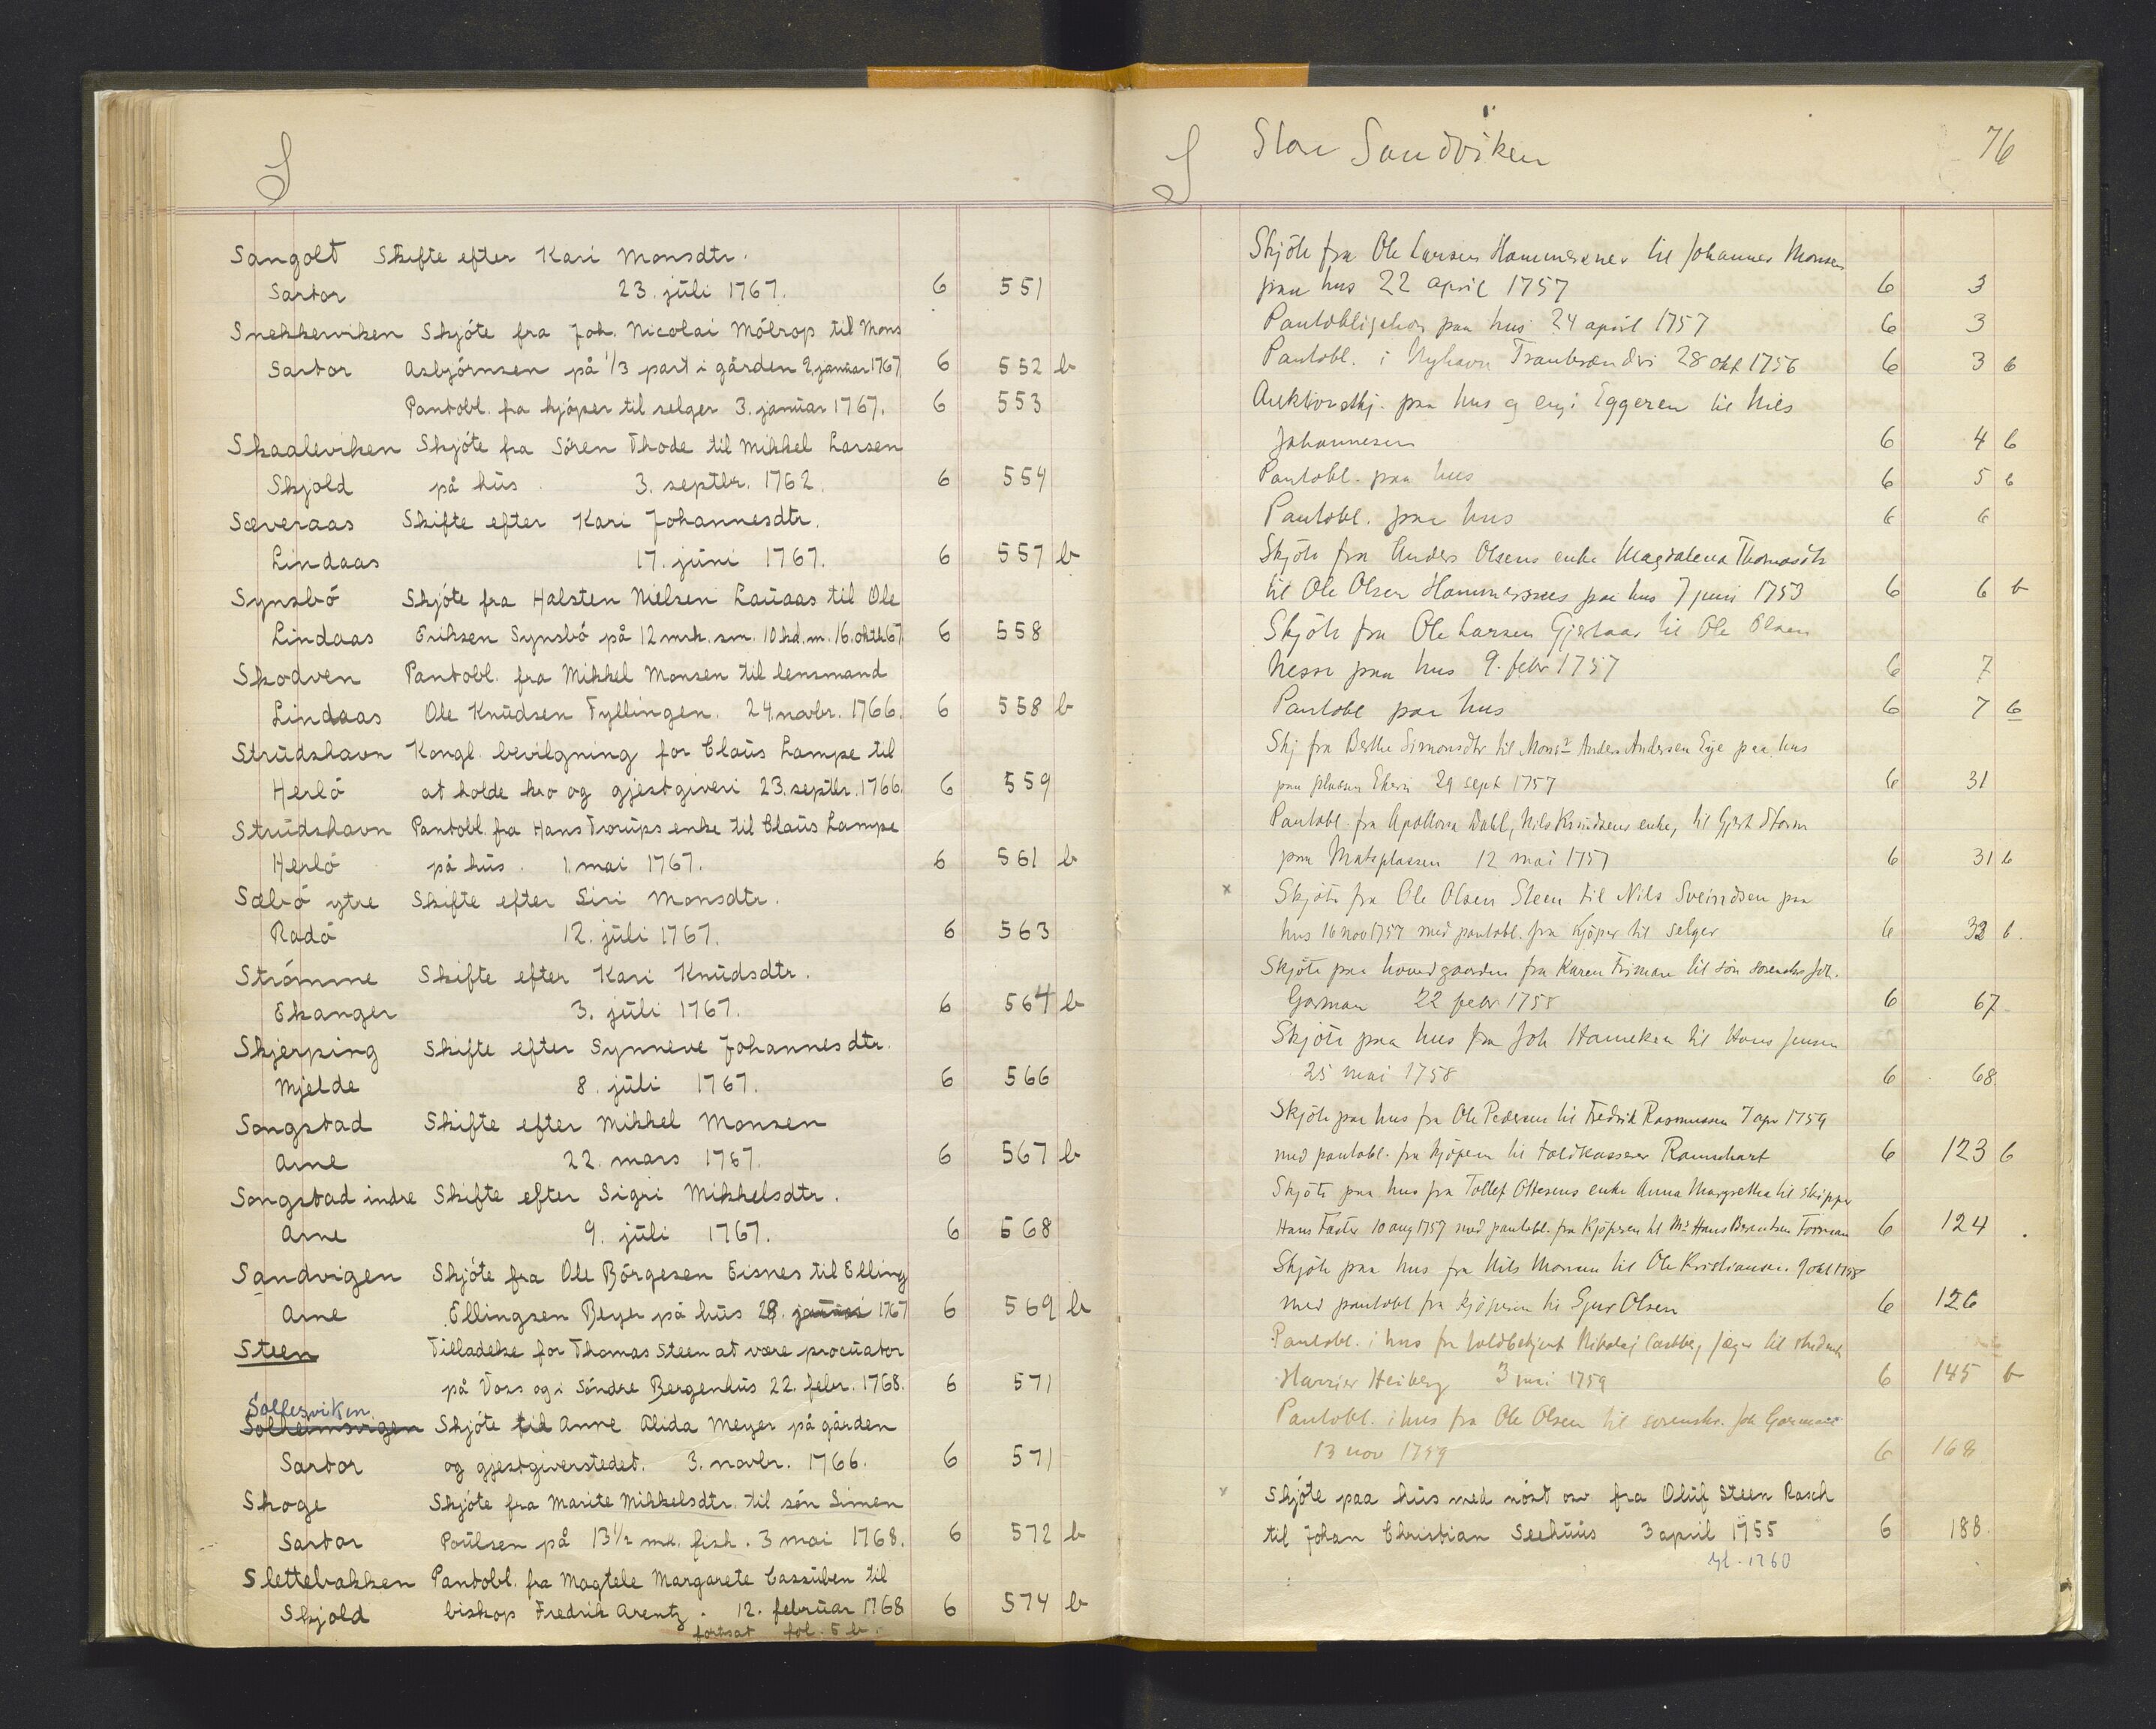 S
Sangolt Skifte efter Kari Monsdtr.
Sartor 23. júli 1767. 6 551
Snekkerviken Skjóte fra Joh. Nicolai Mólrop til Mons
Sartor Asbjórnsen på 1/3 part i gården 2. januar 1767 6 552 b
Pantobl. fra kjóper til selger 3. janúar 1767. 6 553
Skaaleviken Skjóte fra Sóren Thode til Mikkel Larsen
Skjold på hús. 3. septbr. 1762. 6 554
Sæveraas Skifte efter Kari Johannesdtr.
Lindaas 17. júni 1767. 6 557 b
Synsbó Skjóte fra Halsten Nielsen Laúaas til Ole
Lindaas Eriksen Synsbó på 12 mrk. sm. 10 kd. m. 16. oktb 67 6 558
Skodven Pantobl. fra Mikkel Monsen til lensmand
Lindaas Ole Knúdsen Fyllingen. 24. novbr. 1766. 6 558 b
Strúdshavn Kongl. bevilgning for Claús Lampe til
Herló at holde kro og gjestgiveri 23. septbr. 1766. 6 559
Strúdshavn Pantobl. fra Hans Trorúps enke til Claús Lampe
Herló på hús. 1. mai 1767. 6 561 b
Sæbó ytre Skifte efter Siri Monsdtr.
Radó 12. júli 1767. 6 563
Strómme Skifte efter Kari Knúdsdtr.
Ekanger 3. júli 1767. 6 564 b
Skjerping Skifte efter Synneve Johannesdtr.
Mjelde 8. júli 1767. 6 566
Songstad Skifte efter Mikkel Monsen
Arne 22. mars 1767. 6 567 b
Songstad indre Skifte efter Sigri Mikkelsdtr.
Arne 9. júli 1767. 6 568
Sandvigen Skjóte fra Ole Bórgesen Eisnes til Elling
Arne Ellingsen Beyer på hús 28. januar 1767 6 569 b
Steen Tilladelse for Thomas Steen at være procúator
på Voss og i Sóndre Bergenhús 22. febr. 1768. 6 571
Solkesviken
Solheimsvigen Skjóte til Anne Alida Meyer på gården
Sartor og gjestgiverstedet. 3. novbr. 1766. 6 571
Skoge Skjóte fra Marite Mikkelsdtr. til són Simen
Sartor Poúlsen på 13 1/2 mk. fisk. 3 mai 1768. 6 572 b
Slettebakken Pantobl. fra Magtele Margarete Cassúben til
Skjold biskop Fredrik Arentz. 12. februar 1768 6 574 b
fortsat fol. 5 b.
S Store Sandviken 76
Skjöte fra Ole Larsen Hammersnes til Johannes Monsen
paa hus 22 april 1757 6 3
Pantobligation paa hus 24 april 1757 6 3
Pantobl. i Nyhavn Tranbrænderi 28 okt 1756 6 3 b
Auktionsskj. paa hus og eng i Eggeren til Nils
Johannesen 6 4 b
Pantobl. paa hus 6 5 b
Pantobl. paa hus 6 6
Skjöte fra Anders Olsens enke Magdalena Thomasdtr
til Ole Olsen Hammersnes paa hus 7 juni 1753 6 6 b
Skjöte fra Ole Larsen Gjertaas til Ole Olsen
Nesse paa hus 9. febr 1757 6 7
Pantobl paa hus 6 7 b
Skj fra Berthe Simonsdtr til Monsr Anders Andersen Eye paa hus
paa pladsen Ekern 29 sept 1757 6 31
Pantobl. fra Apollona Dahl, Nils Knudsens enke, til Gjert Storm
paa Matsplassen 12 mai 1757 6 31 b
x Skjöte fra Ole Olsen Steen til Nils Sveindsen paa
hus 16 nov 1757 med pantobl. fra kjöper til selger 6 32 b.
Skjöte paa hovedgaarden fra Karen Friman til sön sorenskr Joh.
Garman 22 febr 1758 6 67
Skjöte paa hus fra Joh Hameken til Hans Jensen
25 mai 1758 6 68
Skjöte paa hus fra Ole Pedersen til Fredrik Rasmussen 7 apr 1759
med pantobl. fra kjöperen til toldkasserer Ramshart 6 123 b
Skjöte paa hus fra Tollef Ottesens enke Anna Margretha til skipper
Hans Faster 10 aug 1757 med pantobl. fra kjöperen til Mr Hans Berentsen Forman 6 124
Skjöte paa hus fra Nils Monsen til Ole Kristiansen 9 okt 1758
med pantobl fra kjöperen til Sjur Olsen 6 126
Pantobl. i hus fra toldbetjent Nikolaj Jæger til
Heiberg 3 mai 1759 6 145 b
Pantobl. i hus fra Ole Olsen til sorenskr. Joh Garman
13 nov 1759 6 168
x Skjóte paa hús med nóst ov fra Olúf Steen Rasch
til Johan Christian Seehúús 3 april 1755 6 188
tgl. 1760